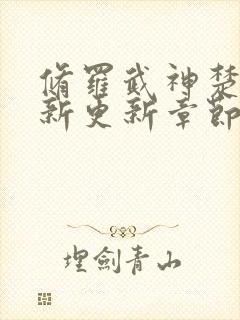 脩羅武神楚
新更新章節
埋劍青山